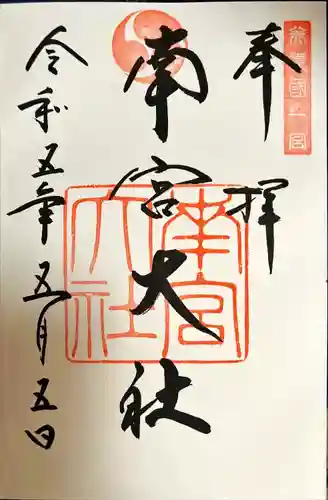 奉拝
美濃國一宮
南宮大社
南宮大社
令和五年五月五日